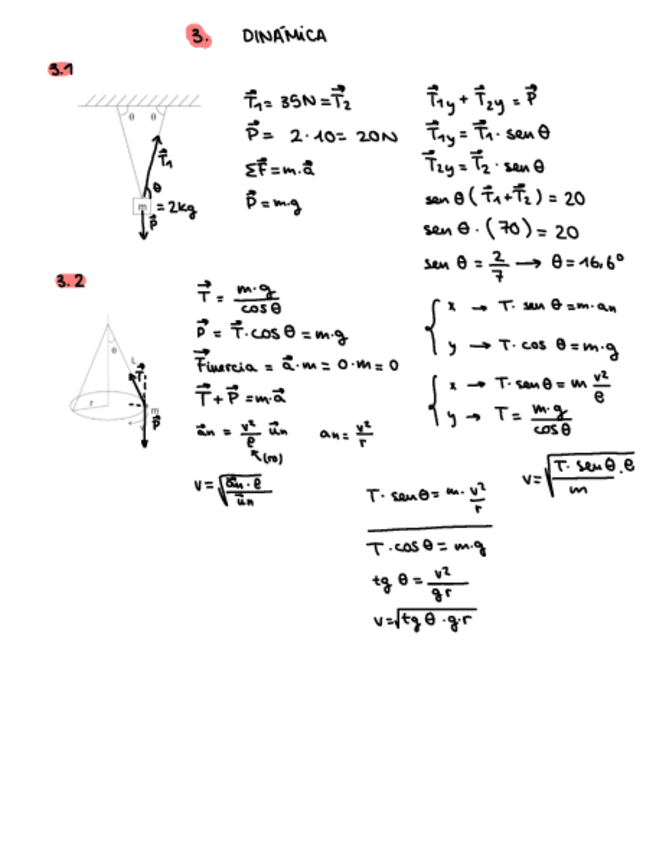 3. DINÁMICA
3.1
θ θ
T⃗₁
θ
m = 2kg
P⃗
T⃗₁ = 35N = T⃗₂
P⃗ = 2·10 = 20N
ΣF⃗ = m·a⃗
P⃗ = m·g
T⃗₁y + T⃗₂y = P⃗
T⃗₁y = T⃗₁ · sen θ
T⃗₂y = T⃗₂ · sen θ
sen θ (T⃗₁ + T⃗₂) = 20
sen θ · (70) = 20
sen θ = 2/7 → θ = 16,6º
3.2
θ
L
T⃗
r
m
P⃗
T⃗ = m·g / cos θ
P⃗ = T⃗ · cos θ = m·g
F⃗inercia = a⃗ · m = 0·m = 0
T⃗ + P⃗ = m·a⃗
a⃗n = v²/ρ u⃗n an = v²/r
↖(ro)
v = √(a⃗n · ρ / u⃗n)
{ x → T · sen θ = m·an
y → T · cos θ = m·g
{ x → T · sen θ = m v²/ρ
y → T = m·g / cos θ
v = √(T · sen θ · ρ / m)
T · sen θ = m · v²/r
T · cos θ = m·g
tg θ = v²/gr
v = √(tg θ · g·r)